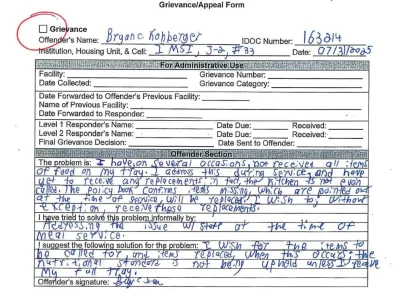 Grievance/Appeal Form
Grievance
Offender's Name: Bryan C. Kohberger IDOC Number: 163214
Institution, Housing Unit, & Cell: IMSI, J-2, #33 Date: 07/31/2025
For Administrative Use
Facility: Grievance Number:
Date Collected: Grievance Category:
Date Forwarded to Offender's Previous Facility:
Name of Previous Facility:
Date Forwarded to Responder:
Level 1 Responder's Name: Date Due: Received:
Level 2 Responder's Name: Date Due: Received:
Final Grievance Decision: Date Sent to Offender:
Offender Section
The problem is: I have, on several occasions, not received all items
of food on my tray. I address this during service, and have
yet to receive any replacements, in fact, the kitchen is not even
called. The policy book confirms items missing, which are pointed out
at the time of service, will be replaced. I wish to, without
exception, receive those replacements.
I have tried to solve this problem informally by:
Addressing the issue w/ staff at the time of
meal service.
I suggest the following solution for the problem: I wish for the items to
be called for, and items replaced, when this occurs; the
nutritional standard is not being upheld unless I receive
my full tray.
Offender's signature: